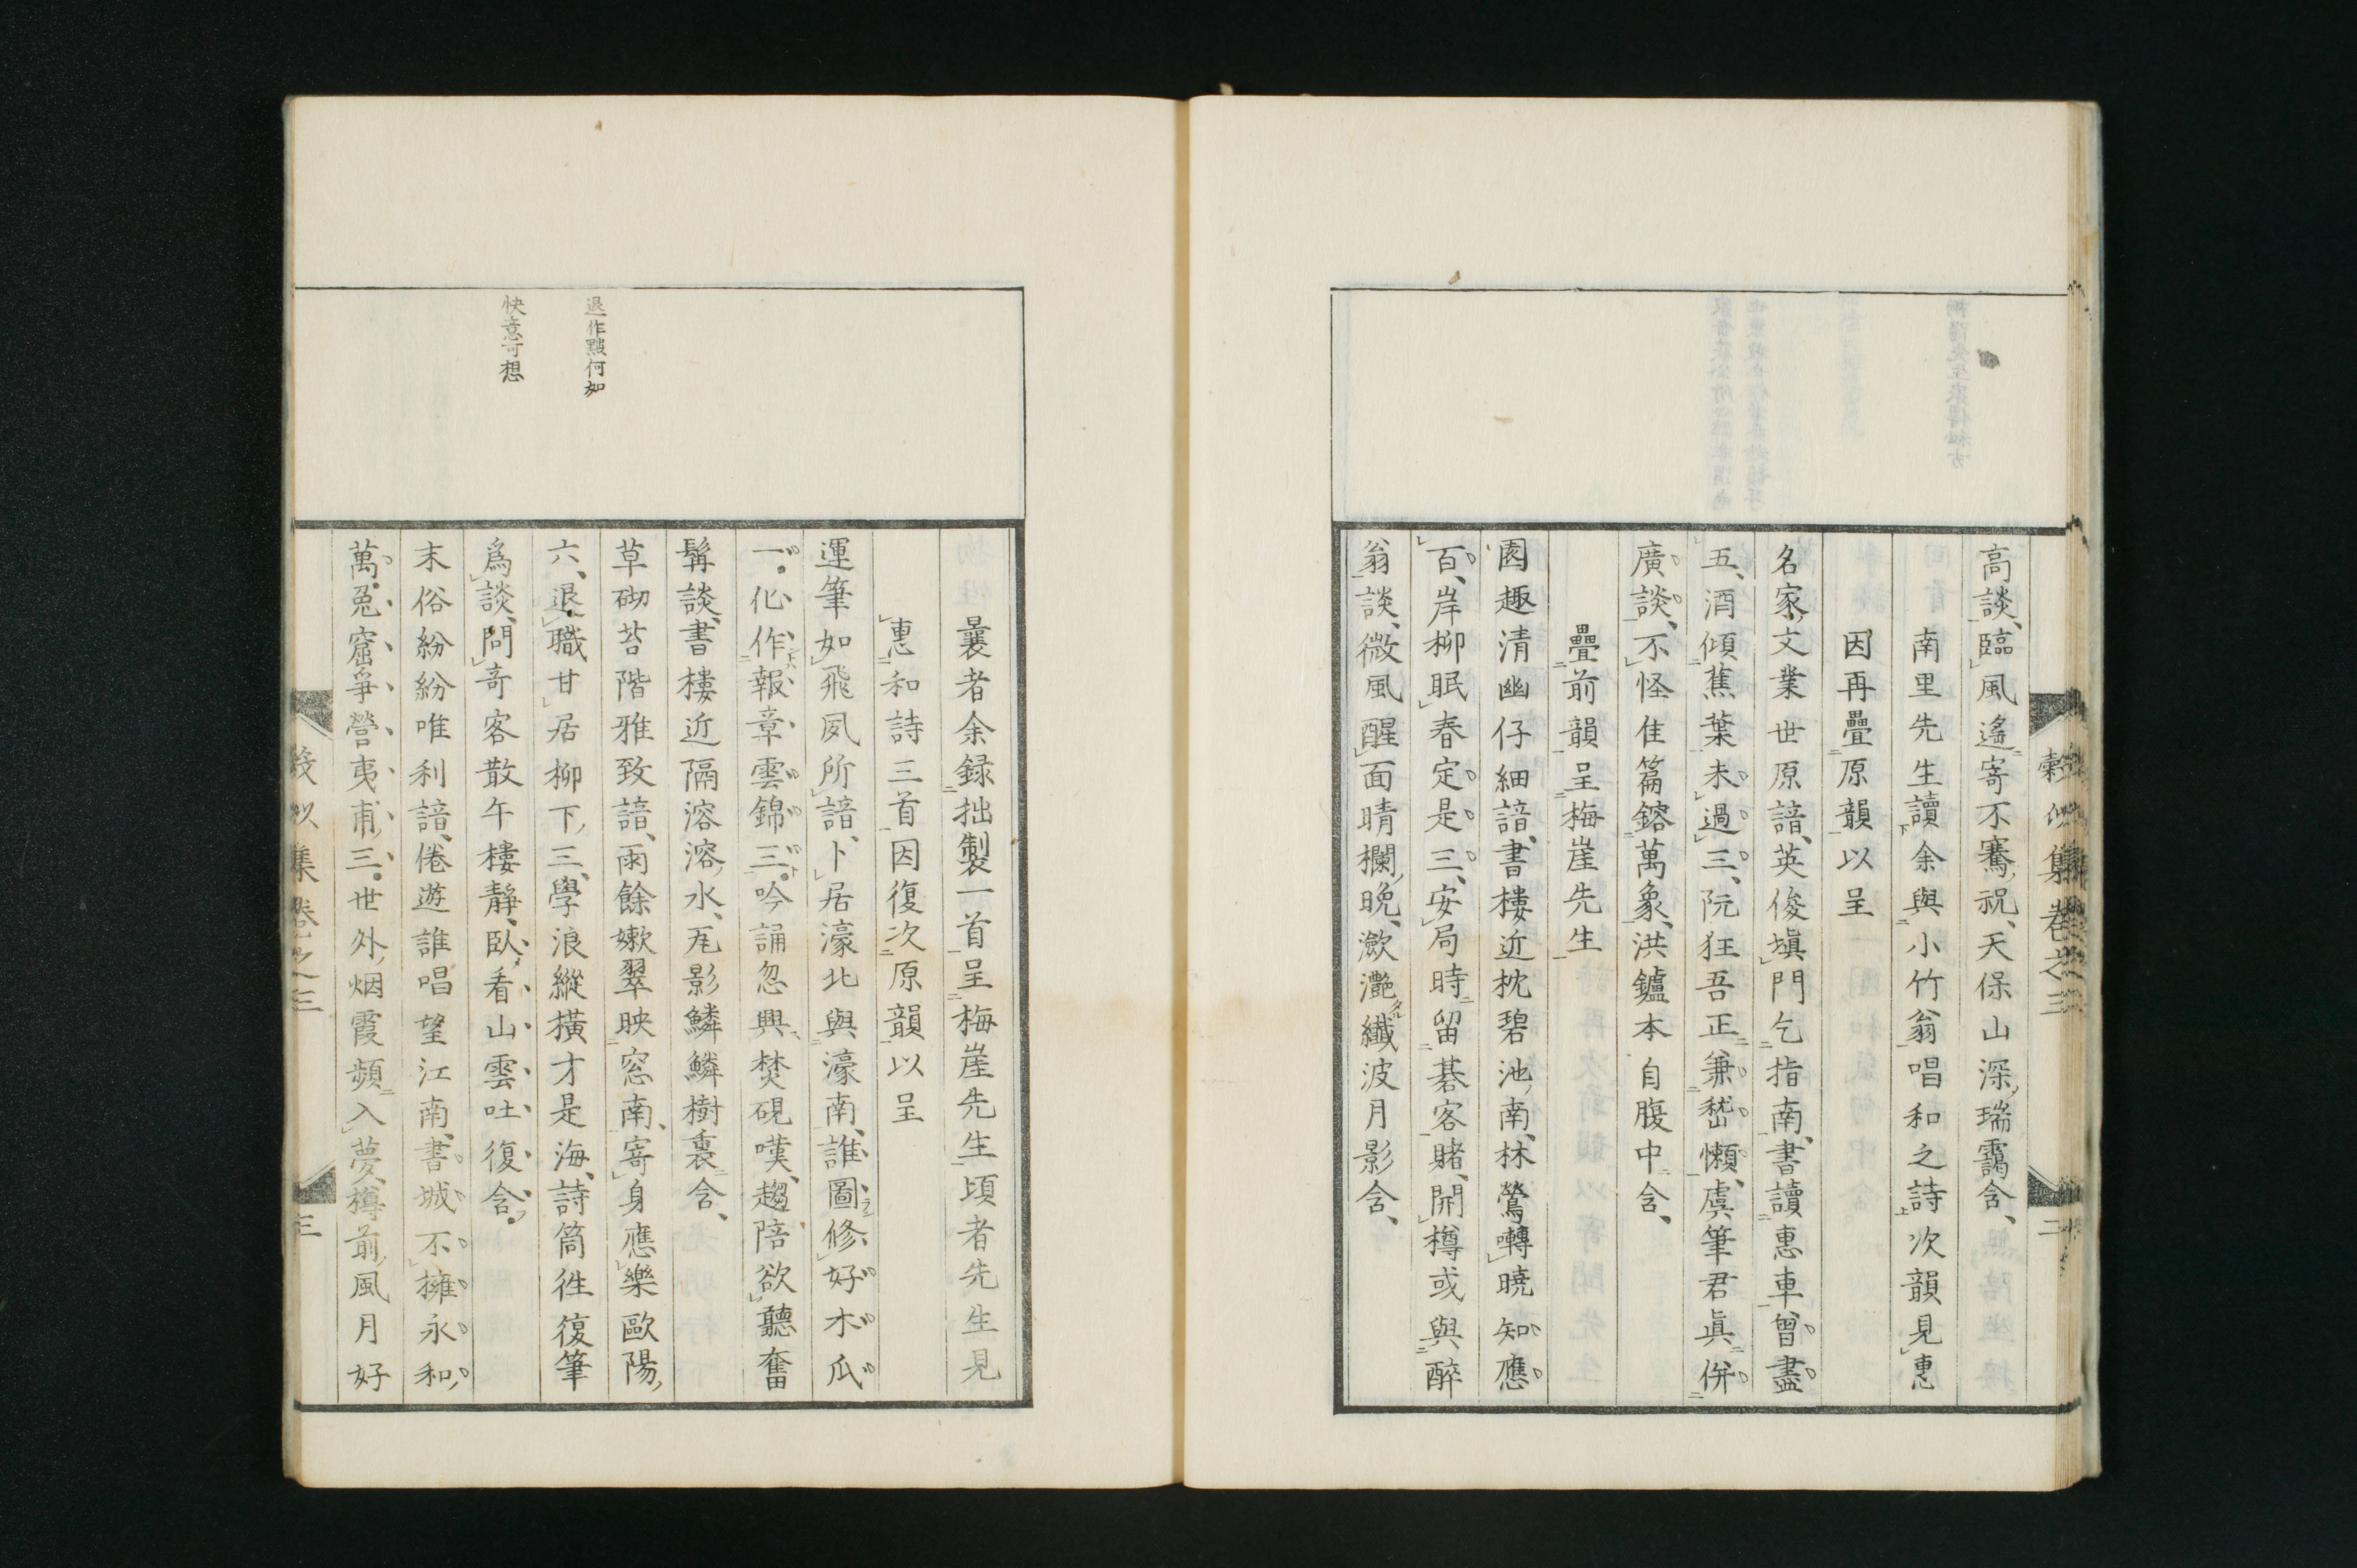 高談臨風遙寄不騫祝天保山深瑞靄含
南里先生讀余與小竹翁唱和之詩次韻見惠
因再疊原韻以呈
名家文業世原諳英俊塡門乞指南書讀惠車曾盡
五酒傾蕉葉未過三阮狂吾正兼嵇懶虞筆君眞併
廣談不怪隹篇鎔萬象洪鑪本自腹中含
疊前韻呈梅崖先生
園趣清幽仔細諳書樓近枕碧池南林鶯囀曉知應
百岸柳眠春定是三安局時留碁客賭開樽或與醉
翁談微風醒面晴欄晩瀲灔纖波月影含
卷之三
二
曩者余録拙製一首呈梅崖先生頃者先生見
惠和詩三首因復次原韻以呈
運筆如飛夙所諳卜居濠北與濠南誰圖修好木瓜
一化作報章雲錦三吟誦忽興焚硯嘆趨陪欲聽奮
髯談書樓近隔溶溶水瓦影鱗鱗樹裏含
草砌苔階雅致諳雨餘嫩翠映窓南寄身應樂歐陽
六退職甘居柳下三學浪縱橫才是海詩筒往復筆
爲談問奇客散午樓靜臥看山雲吐復含
末俗紛紛唯利諳倦遊誰唱望江南書城不擁永和
萬兎窟爭營夷甫三世外烟霞頻入夢樽前風月好
退作黜何如
快意可想
集卷之三
三